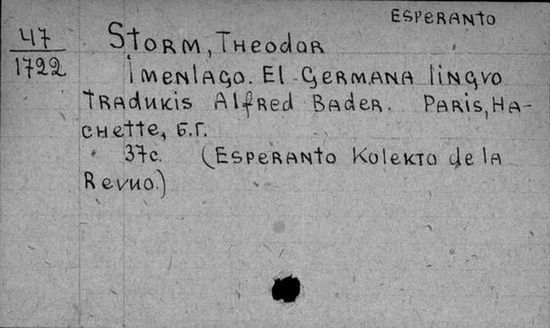 ESPERANTO
47
1722
STORM, THEODOR
IMENLAGO. EL GERMANA LINGVO
TRADUKIS ALFRED BADER. PARIS, HA-
CHETTE, Б.Г.
37с. (ESPERANTO KOLEKTO DE LA
REVUO.)